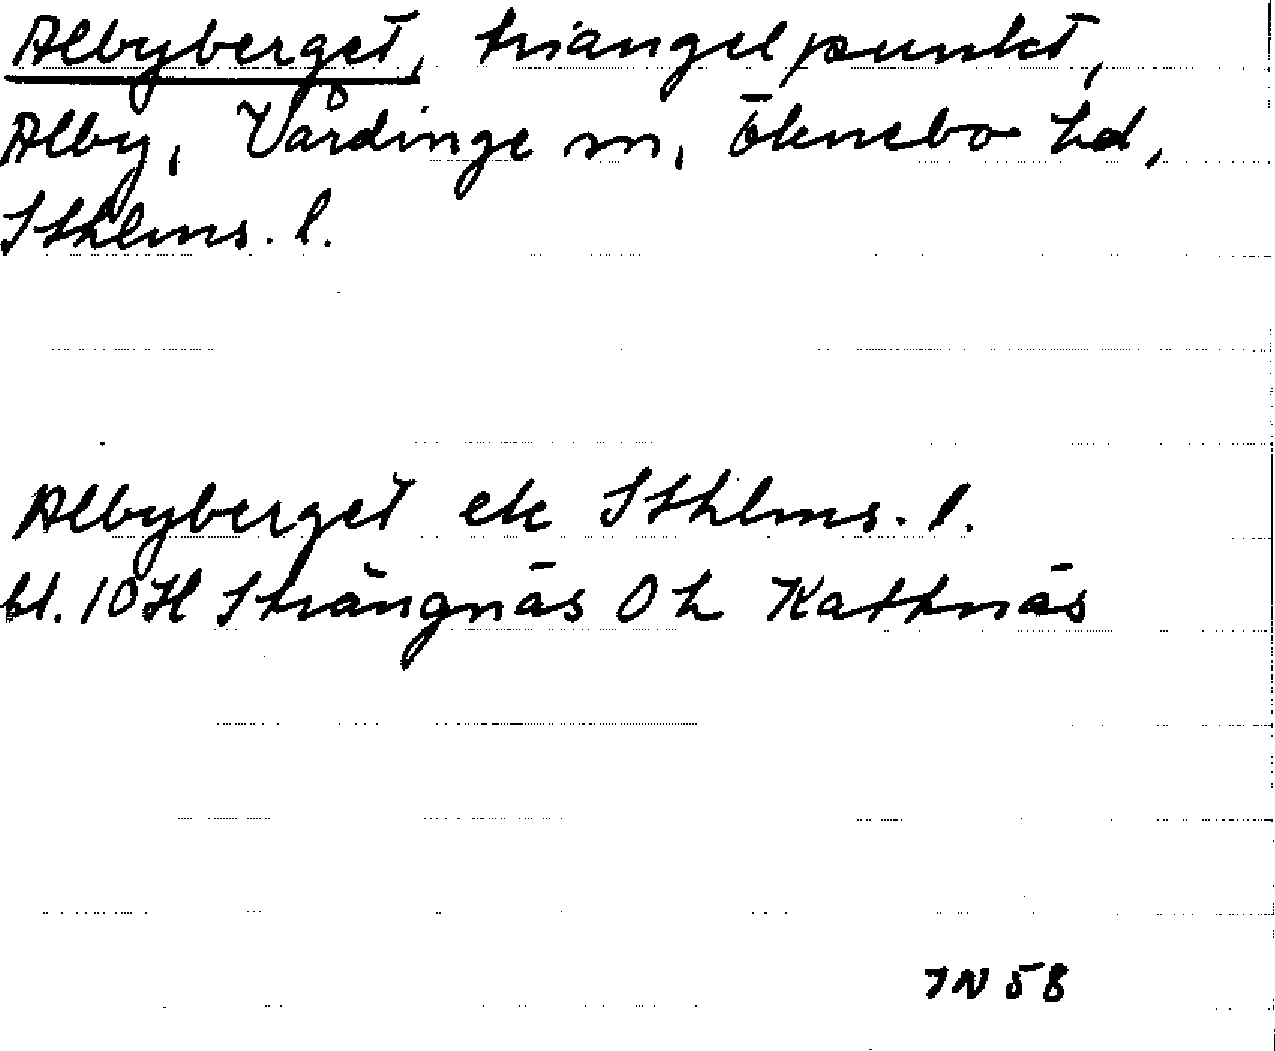 Albyberget, triangelpunkt,
Alby, Vårdinge sn, Öknebo hd,
Sthlms. l.
Albyberget ek Sthlms. l.
bl. 10H Strängnäs 0 h Kattnäs
IN 58